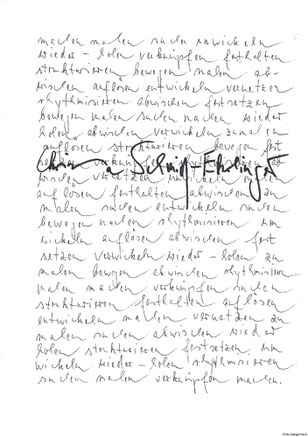 machen malen suchen entwickeln
wieder - holen verknüpfen festhalten
strukturieren bewegen malen ab-
wischen auflösen entwickeln vernetzen
rhythmisieren abwischen festsetzen
bewegen malen suchen machen wieder
holen abwischen verwickeln zumalen
auflösen strukturieren bewegen fest
auflösen festhalten abwischen zu
malen suchen entwickeln suchen
bewegen machen rhythmisieren um
wickeln auflösen abwischen fest
setzen verwickeln wieder - holen zu
malen bewegen abwischen rhythmisieren
malen machen verknüpfen suchen
strukturieren festhalten auflösen
entwickeln machen vernetzen zu
malen suchen abwischen wieder
holen strukturieren festsetzen um
wickeln wieder - holen rhythmisieren
suchen malen verknüpfen machen.